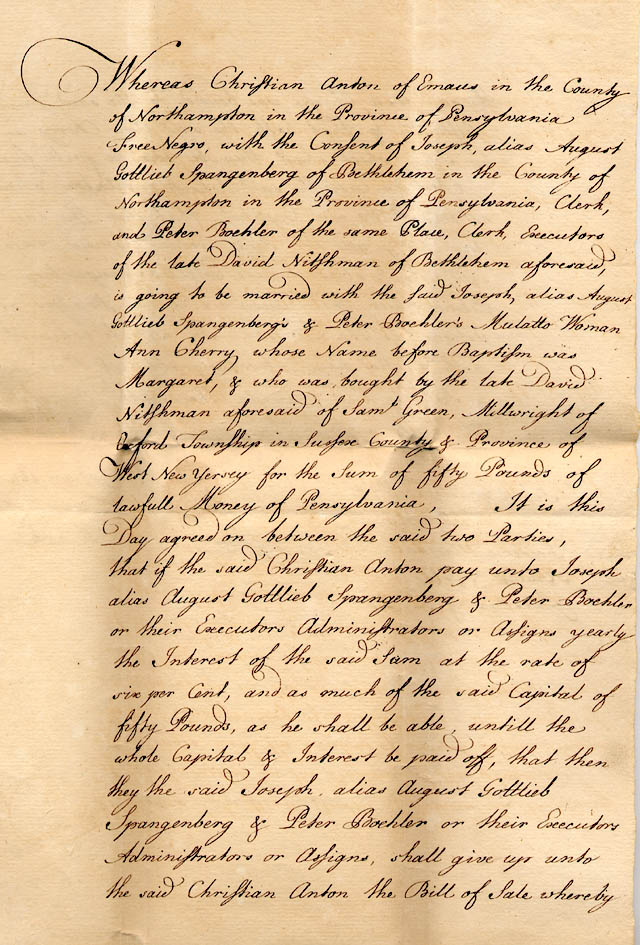 Whereas Christian Anton of Emaus in the County
of Northampton in the Province of Pensylvania
Free Negro, with the Consent of Joseph, alias August
Gottlieb Spangenberg of Bethlehem in the County of
Northampton in the Province of Pensylvania, Clerk,
and Peter Boehler of the same Place, Clerk, Executors
of the late David Nitshman of Bethlehem aforesaid,
is going to be married with the said Joseph, alias August
Gottlieb Spangenberg's & Peter Boehler's Mulatto Woman
Ann Cherry, whose Name before Baptism was
Margaret, & who was bought by the late David
Nitshman aforesaid of Samˡ Green, Millwright of
Oxford Township in Sussex County & Province of
West New Yersey for the Sum of fifty Pounds of
lawfull Money of Pensylvania, It is this
Day agreed on between the said two Parties,
that if the said Christian Anton pay unto Joseph
alias August Gottlieb Spangenberg & Peter Boehler
or their Executors Administrators or Assigns yearly
the Interest of the said Sum at the rate of
six per Cent, and as much of the said Capital of
fifty Pounds, as he shall be able, untill the
whole Capital & Interest be paid off, that then
they the said Joseph, alias August Gottlieb
Spangenberg & Peter Boehler or their Executors
Administrators or Assigns, shall give up unto
the said Christian Anton the Bill of Sale whereby